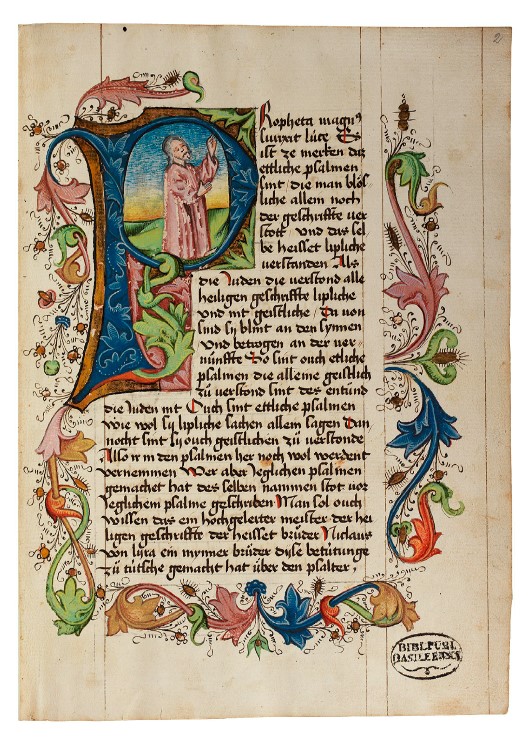 2
Propheta magnus
surrexit luce Es
ist ze merken daz
ettliche psalmen
sint die man blős
liche allein noch
der geschrifte ver
stott und das sel
be heisset lipliche
verstanden Als
die Juden die verstond alle
heiligen geschriffte lipliche
und nit geistliche Da von
sind sÿ blint an den sÿnnen
und betrogen an der ver
nunffte Es sint ouch etliche
psalmen die alleine geistlich
zů verstond sint des entůnd
die Juden nit Ouch sint ettliche psalmen
wie wol sÿ lipliche sachen allein sagen Dan
nocht sint sÿ ouch geistlichen zů verstonde
Also ir in den psalmen her noch wol werdent
vernemmen Wer aber Jeglichen psalmen
gemachet hat des selben nammen stot vor
Jeglichem psalme geschriben Man sol ouch
wissen das ein hochgelerter meister der hei
ligen geschriffte der heisset brůder Niclaus
von lÿra ein mÿnner brůder dise betútunge
zů tútsche gemacht hat úber den psalter.
BIBL.PUBL
BASILEENSIS